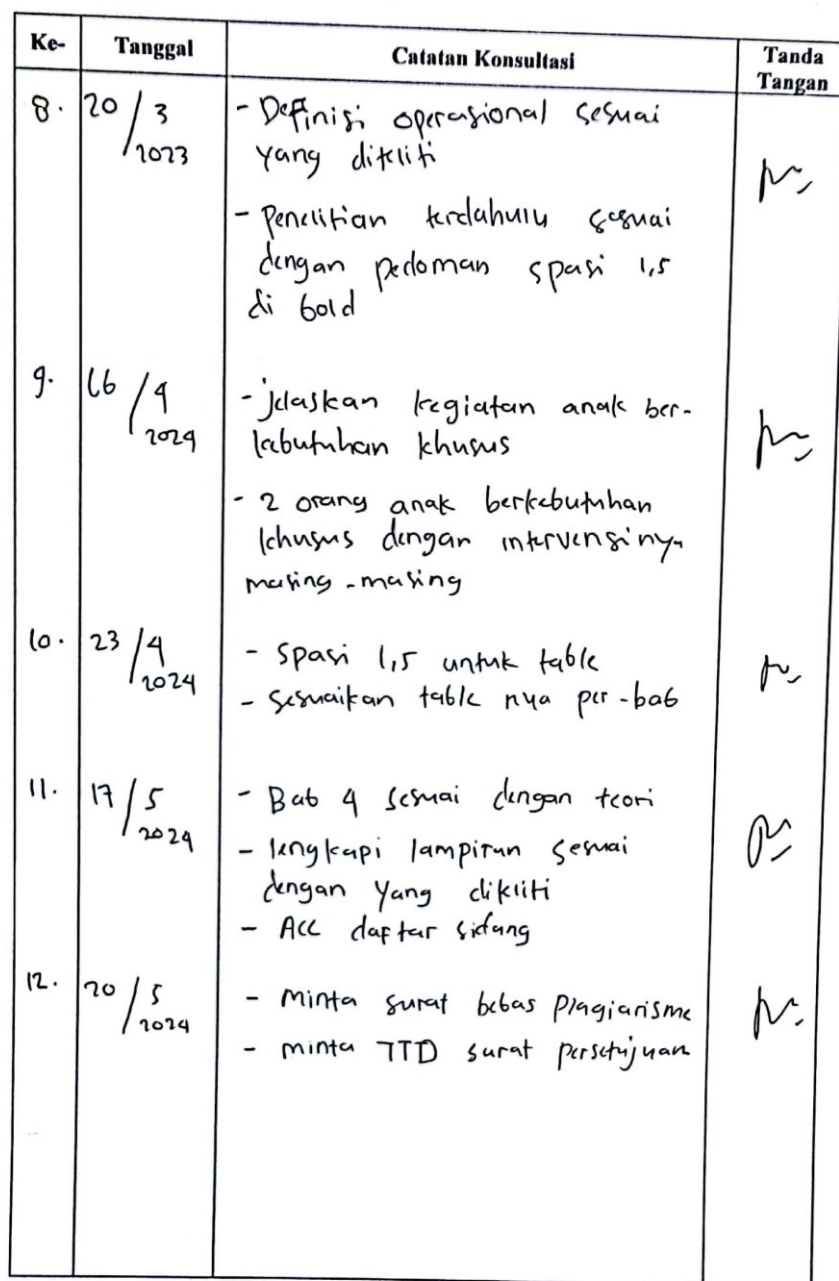 Ke- Tanggal Catatan Konsultasi Tanda Tangan
8. 20/3 2023 - Definisi operasional sesuai
yang diteliti
- Penelitian terdahulu sesuai
dengan pedoman spasi 1,5
di bold
9. 16/4 2024 - jelaskan kegiatan anak ber-
kebutuhan khusus
- 2 orang anak berkebutuhan
khusus dengan intervensinya
masing-masing
10. 23/4 2024 - Spasi 1,5 untuk table
- sesuaikan table nya per-bab
11. 17/5 2024 - Bab 4 sesuai dengan teori
- lengkapi lampiran sesuai
dengan yang diteliti
- ACC daftar sidang
12. 20/5 2024 - minta surat bebas Plagiarisme
- minta TTD surat persetujuan